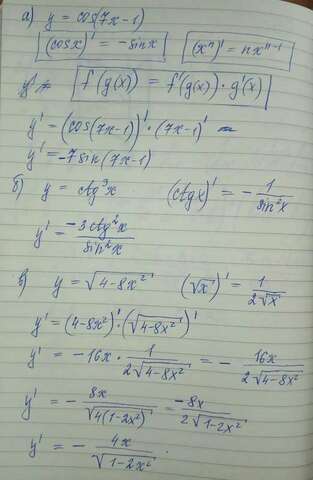 а) y = cos(7x-1)
(cosx)' = -sinx (xⁿ)' = nxⁿ⁻¹
f(g(x)) = f'(g(x))·g'(x)
y' = (cos(7x-1))'·(7x-1)' =
y' = -7sin(7x-1)
б) y = ctg³x (ctgx)' = - 1/sin²x
y' = -3ctg²x/sin²x
в) y = √(4-8x²) (√x)' = 1/(2√x)
y' = (4-8x²)'·(√(4-8x²))'
y' = -16x · 1/(2√(4-8x²)) = - 16x/(2√(4-8x²))
y' = - 8x/√(4(1-2x²)) = -8x/(2√(1-2x²))
y' = - 4x/√(1-2x²)